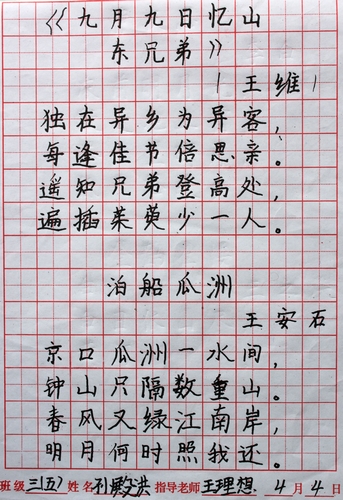 《九月九日忆山
东兄弟》
(王维)
独在异乡为异客,
每逢佳节倍思亲。
遥知兄弟登高处,
遍插茱萸少一人。
泊船瓜洲
王安石
京口瓜洲一水间,
钟山只隔数重山。
春风又绿江南岸,
明月何时照我还。
班级 三(五) 姓名 孙 洪 指导老师 王理想. 4月4日